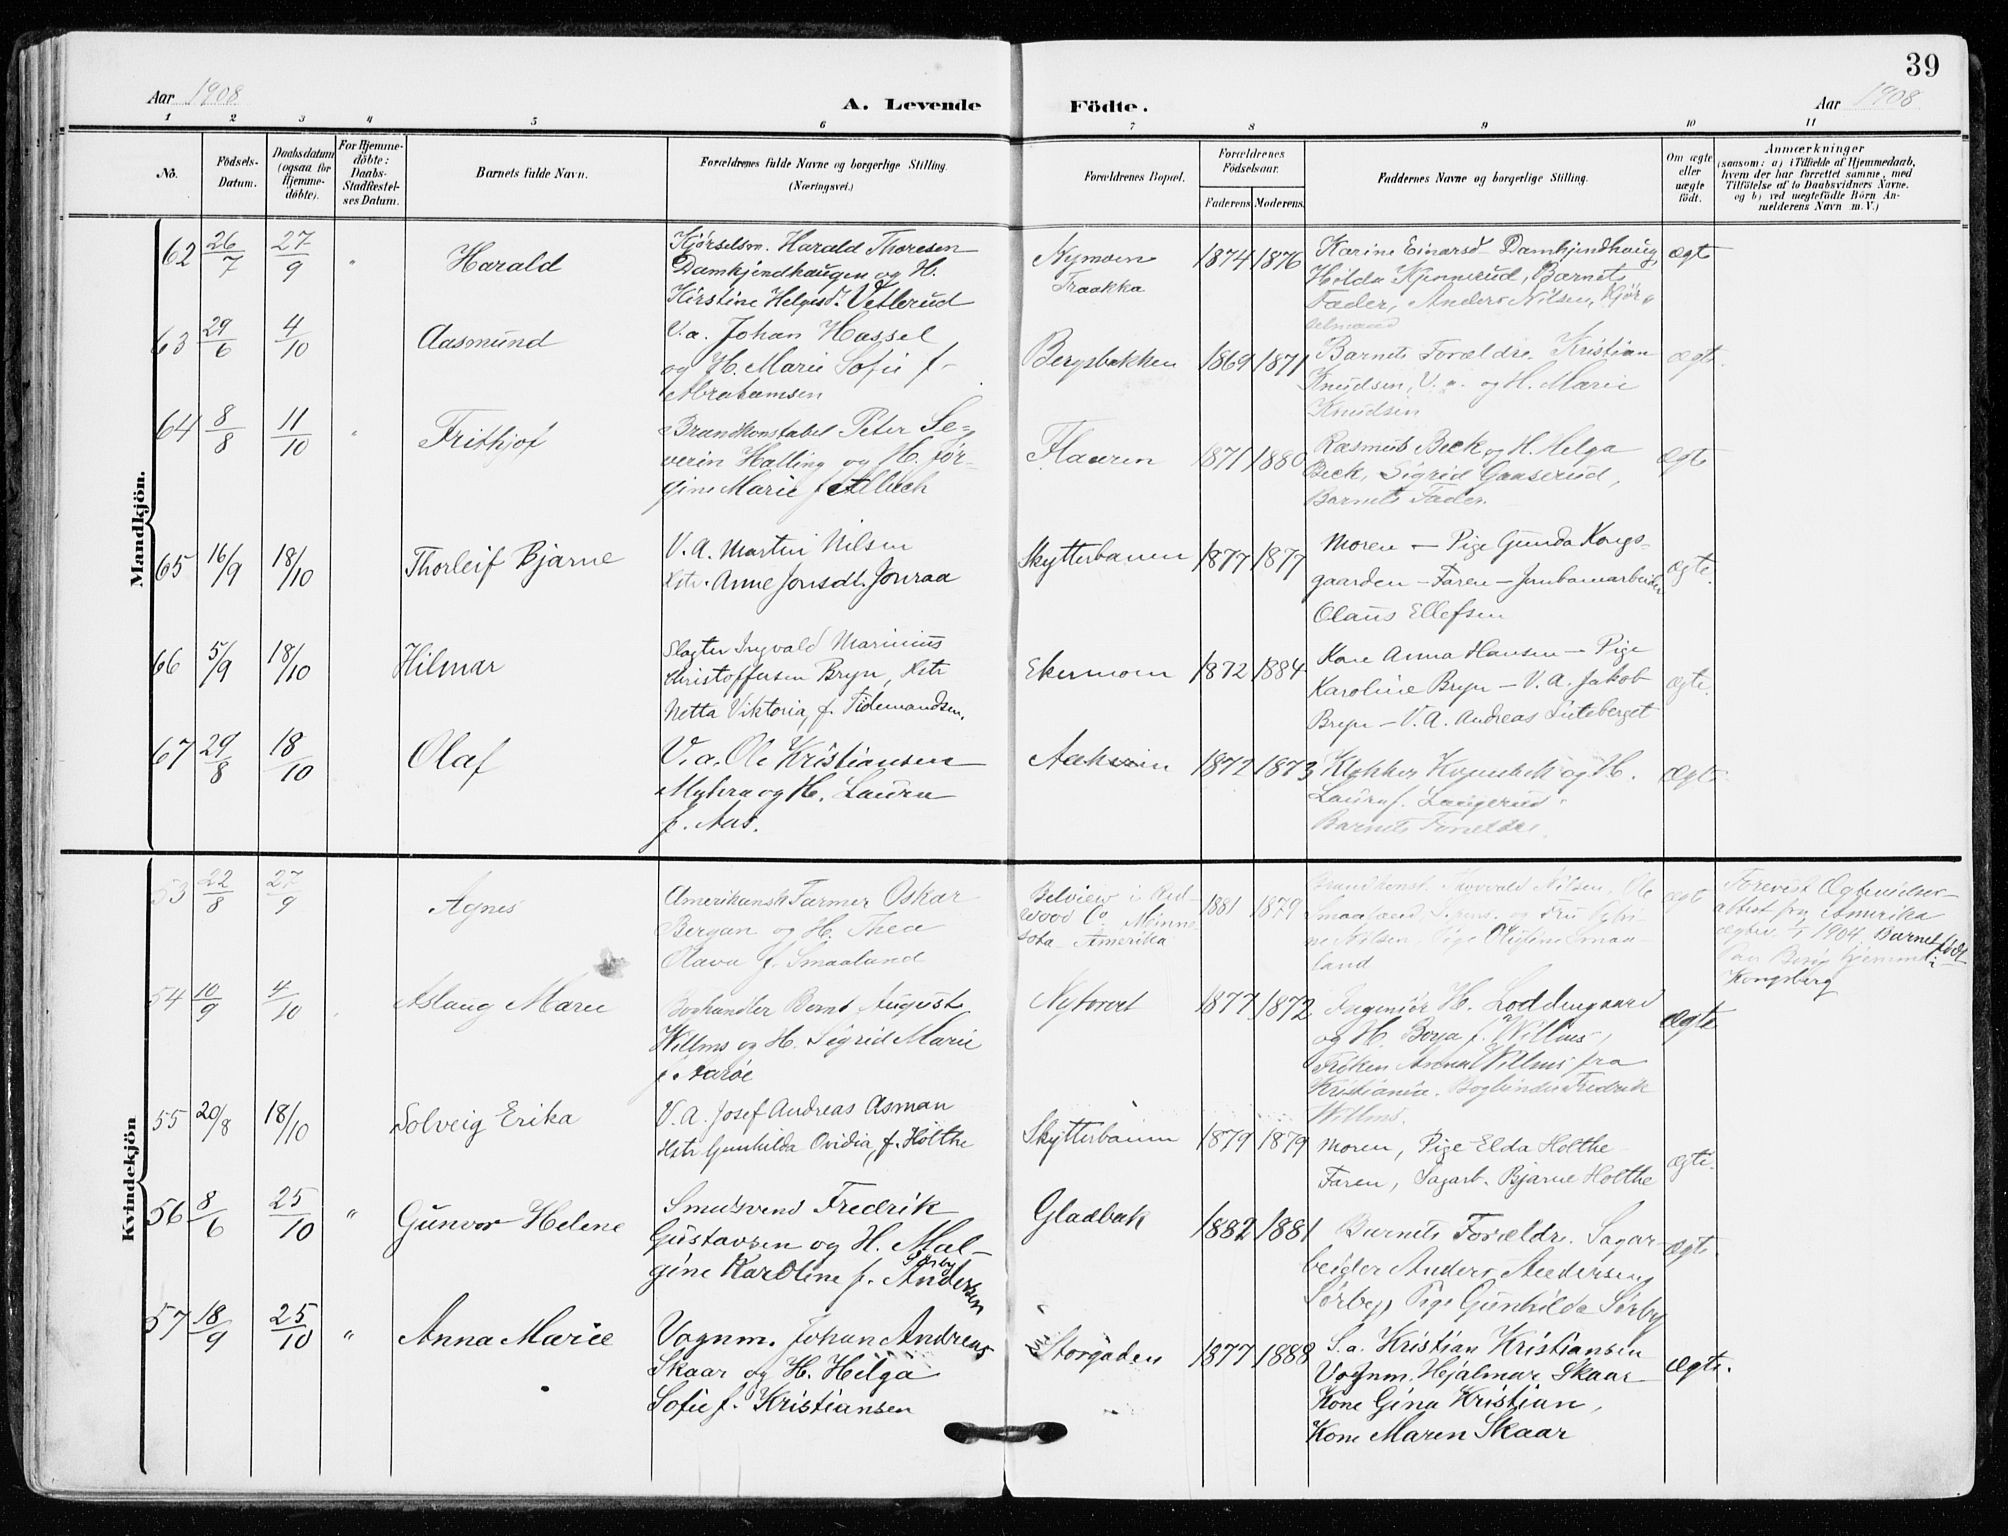 39
Aar 1908 A. Levende Födte. Aar 1908
1 2 3 4 5 6 7 8 9 10 11
No.
Födsels-
Datum.
Daabsdatum
(ogsaa for
Hjemme-
döbte).
For Hjemme-
döbte:
Daabs-
Stadfæstel-
ses Datum.
Barnets fulde Navn.
Forældrenes fulde Navne og borgerlige Stilling.
(Næringsvei.)
Forældrenes Bopæl.
Forældrenes
Födselsaar.
Faderens Moderens
Faddernes Navne og borgerlige Stilling.
Om ægte
eller
uægte
födt.
Anmærkninger
(saasom: a) i Tilfælde af Hjemmedaab,
hvem der har forrettet samme, med
Tilföielse af to Daabsvidners Navne.
og b) ved uægtefödte Börn An-
melderens Navn m. V.)
Mandkjön.
62 26/7 27/9 " Harald
Kjørselsm. Harald Thoresen
Damhjendhaugen og H.
Kirstine Helgesd. Vetlerud
Nymoen
Traakka
1874 1876
Karine Einarsd Damhjendhaug,
Hilda Kjennerud, Barnets
Fader, Anders Nilsen, Kjør-
selmand
ægte
63 29/6 4/10 Aasmund
V.a. Johan Hassel
og H. Marie Sofie f.
Abrahamsen
Bergsbakken
1869 1871
Barnets Forældre. Kristian
Knudsen, V. a. og H. Marie
Knudsen
ægte.
64 8/8 11/10 " Frithjof
Brandkonstabel Peter Se-
verin Halling og H. Jør-
gine Marie f. Albech
Flauren
1871 1880
Rasmus Beck og H. Helga
Beck, Sigrid Gaaserud,
Barnets Fader.
ægte
65 16/9 18/10 Thorleif Bjarne
V. A. Martin Nilsen
Hstr. Anne Jonsdt. Jonraa
Skytterbanen
1877 1877
Moren — Pige Gunda Kongs-
gaarden — Faren — Jernbanearbeider
Olaus Ellefsen
ægte.
66 5/9 18/10 Hilmar
Slagter Ingvald Marinius
Christoffersen Bryn, Hstr
Netta Viktoria, f. Tidemandsen.
Ekermoen
1872 1884
Kone Anna Hansen — Pige
Karoline Bryn — V. A. Jakob
Bryn — V. A. Andreas Luteberget
ægte.
67 29/8 18/10 Olaf
V. a. Ole Kristiansen
Myhra og H. Laura
f. Aas.
1872 1873
Klokker og H.
Laura f. Laugerud.
Barnets Forældre.
ægte
Kvindekjön
53 22/8 27/9 Agnes
Amerikansk Farmer Oskar
Bergan og H. Thea
Olava f. Smaaland
Belview i Red-
wood Co. Minne-
sota Amerika
1881 1879
Brandkonst. Thorvald Nilsen, Ole
Smaaland, og Fru
Nilsen, Pige Smaa-
land
ægte
Forevist Ægteviдses-
attest fra Amerika
1904. Barnet født
i
Kongsberg
54 10/9 4/10 Aslaug Marie
Boghandler Bernt August
Willms og H. Sigrid Marie
f. Aarøe
Nytorvet
1877 1872
Ingeniør H. Loddengaard
og H. Borga f. Willms,
Frøken Anna Willms fra
Kristiania. Bogbinder Fredrik
Willms.
ægte
55 20/8 18/10 Solveig Erika
V. A. Josef Andreas Asman
Hstr Gunhilda Ovidia, f. Holthe
Skytterbanen
1879 1879
Moren, Pige Elda Holthe
Faren, Sagarb. Bjarne Holthe
ægte.
56 8/6 25/10 " Gunvor Helene
Smedsvend Fredrik
Gustavsen og H. Mal-
gine Karoline f. Andersen
Sørby
Gladbak
1882 1881
Barnets Forældre. Sagar-
beider Anders Andersen
Sørby, Pige Gunhilda Sørby
ægte.
57 18/9 25/10 " Anna Marie
Vognm. Johan Andreas
Skaar og H. Helga
Sofie f. Kristiansen
Storgaden
1877 1888
S. a. Kristian Kristiansen
Vognm. Hjalmar Skaar
Kone Gina Kristian,
Kone Maren Skaar
ægte.